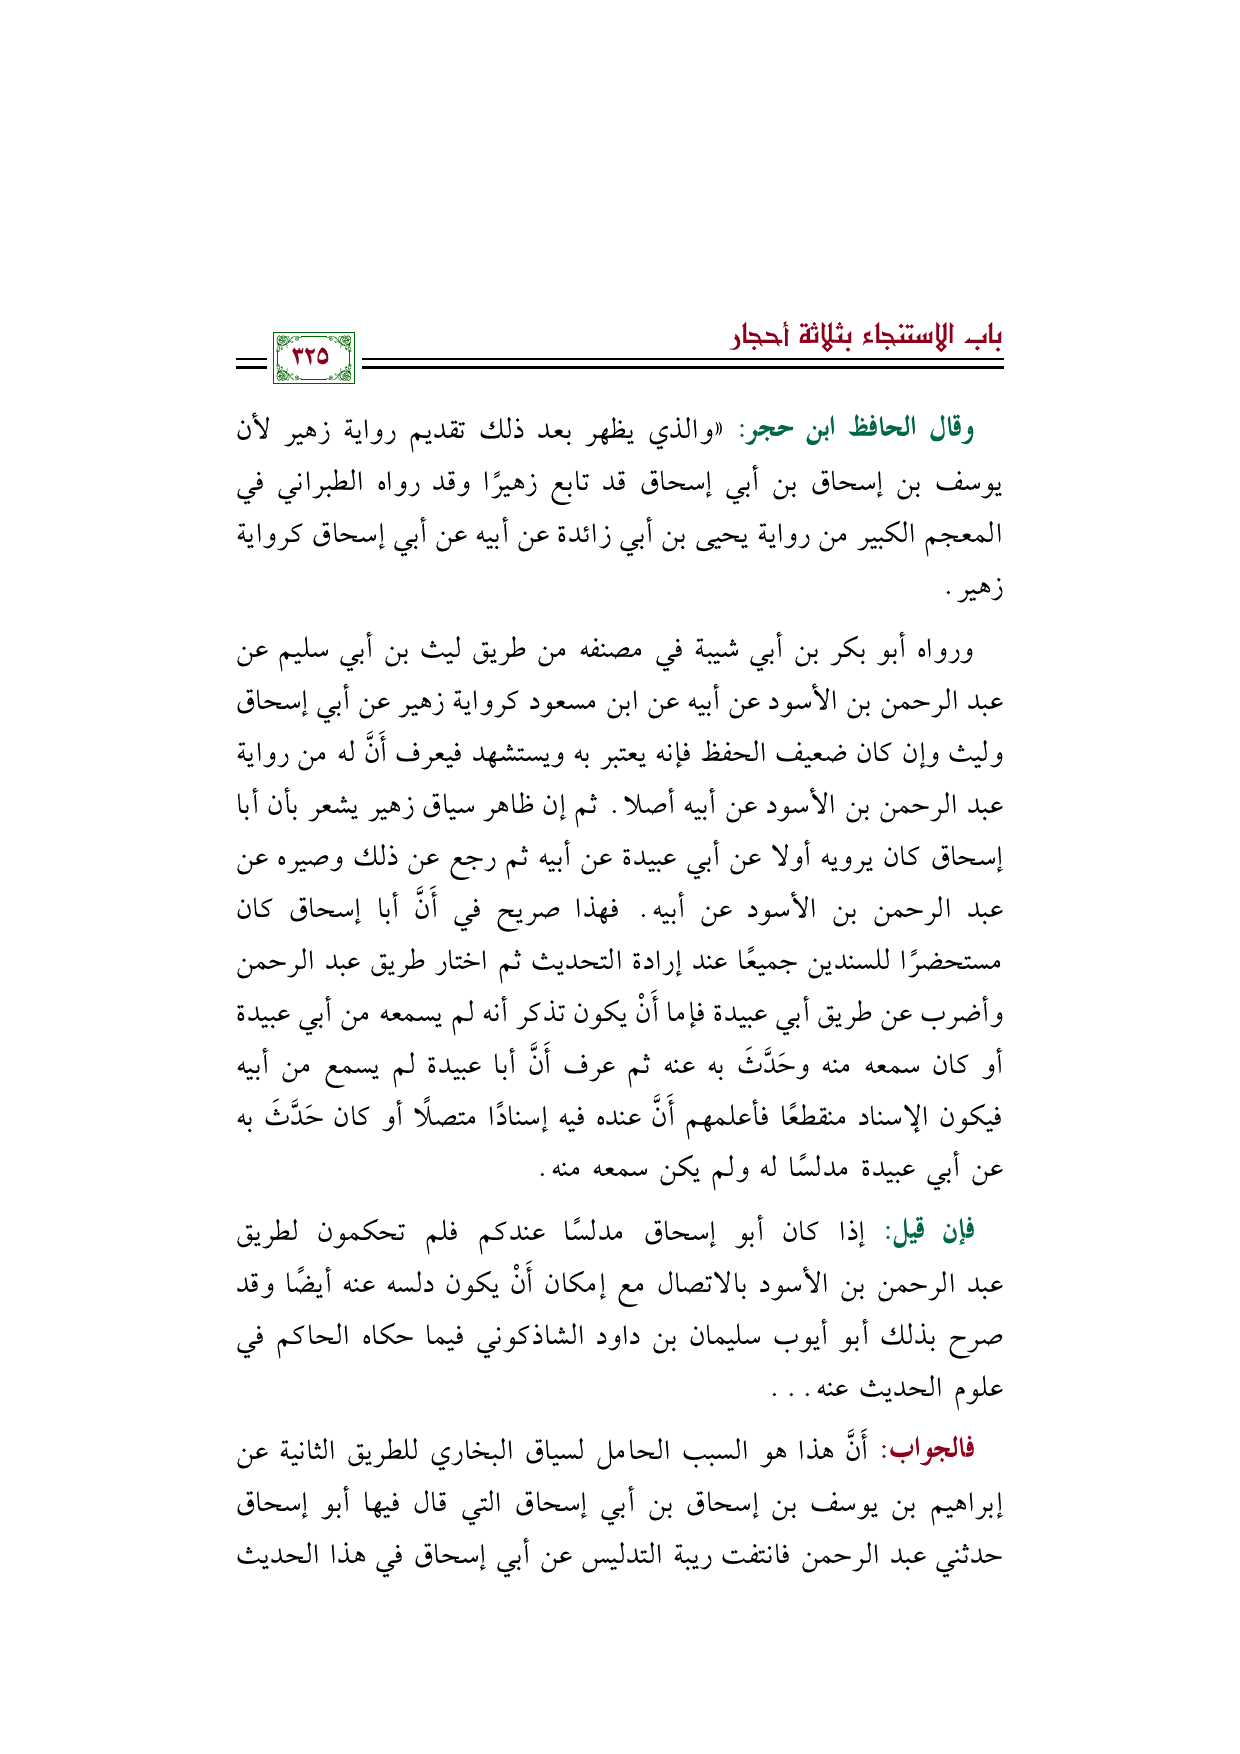 باب الاستنجاء بثلاثة أحجار
٣٢٥
وقال الحافظ ابن حجر: «والذي يظهر بعد ذلك تقديم رواية زهير لأن
يوسف بن إسحاق بن أبي إسحاق قد تابع زهيرًا وقد رواه الطبراني في
المعجم الكبير من رواية يحيى بن أبي زائدة عن أبيه عن أبي إسحاق كرواية
زهير.
ورواه أبو بكر بن أبي شيبة في مصنفه من طريق ليث بن أبي سليم عن
عبد الرحمن بن الأسود عن أبيه عن ابن مسعود كرواية زهير عن أبي إسحاق
وليث وإن كان ضعيف الحفظ فإنه يعتبر به ويستشهد فيعرف أَنَّ له من رواية
عبد الرحمن بن الأسود عن أبيه أصلا. ثم إن ظاهر سياق زهير يشعر بأن أبا
إسحاق كان يرويه أولا عن أبي عبيدة عن أبيه ثم رجع عن ذلك وصيره عن
عبد الرحمن بن الأسود عن أبيه. فهذا صريح في أَنَّ أبا إسحاق كان
مستحضرًا للسندين جميعًا عند إرادة التحديث ثم اختار طريق عبد الرحمن
وأضرب عن طريق أبي عبيدة فإما أَنْ يكون تذكر أنه لم يسمعه من أبي عبيدة
أو كان سمعه منه وحَدَّثَ به عنه ثم عرف أَنَّ أبا عبيدة لم يسمع من أبيه
فيكون الإسناد منقطعًا فأعلمهم أَنَّ عنده فيه إسنادًا متصلًا أو كان حَدَّثَ به
عن أبي عبيدة مدلسًا له ولم يكن سمعه منه.
فإن قيل: إذا كان أبو إسحاق مدلسًا عندكم فلم تحكمون لطريق
عبد الرحمن بن الأسود بالاتصال مع إمكان أَنْ يكون دلسه عنه أيضًا وقد
صرح بذلك أبو أيوب سليمان بن داود الشاذكوني فيما حكاه الحاكم في
علوم الحديث عنه...
فالجواب: أَنَّ هذا هو السبب الحامل لسياق البخاري للطريق الثانية عن
إبراهيم بن يوسف بن إسحاق بن أبي إسحاق التي قال فيها أبو إسحاق
حدثني عبد الرحمن فانتفت ريبة التدليس عن أبي إسحاق في هذا الحديث